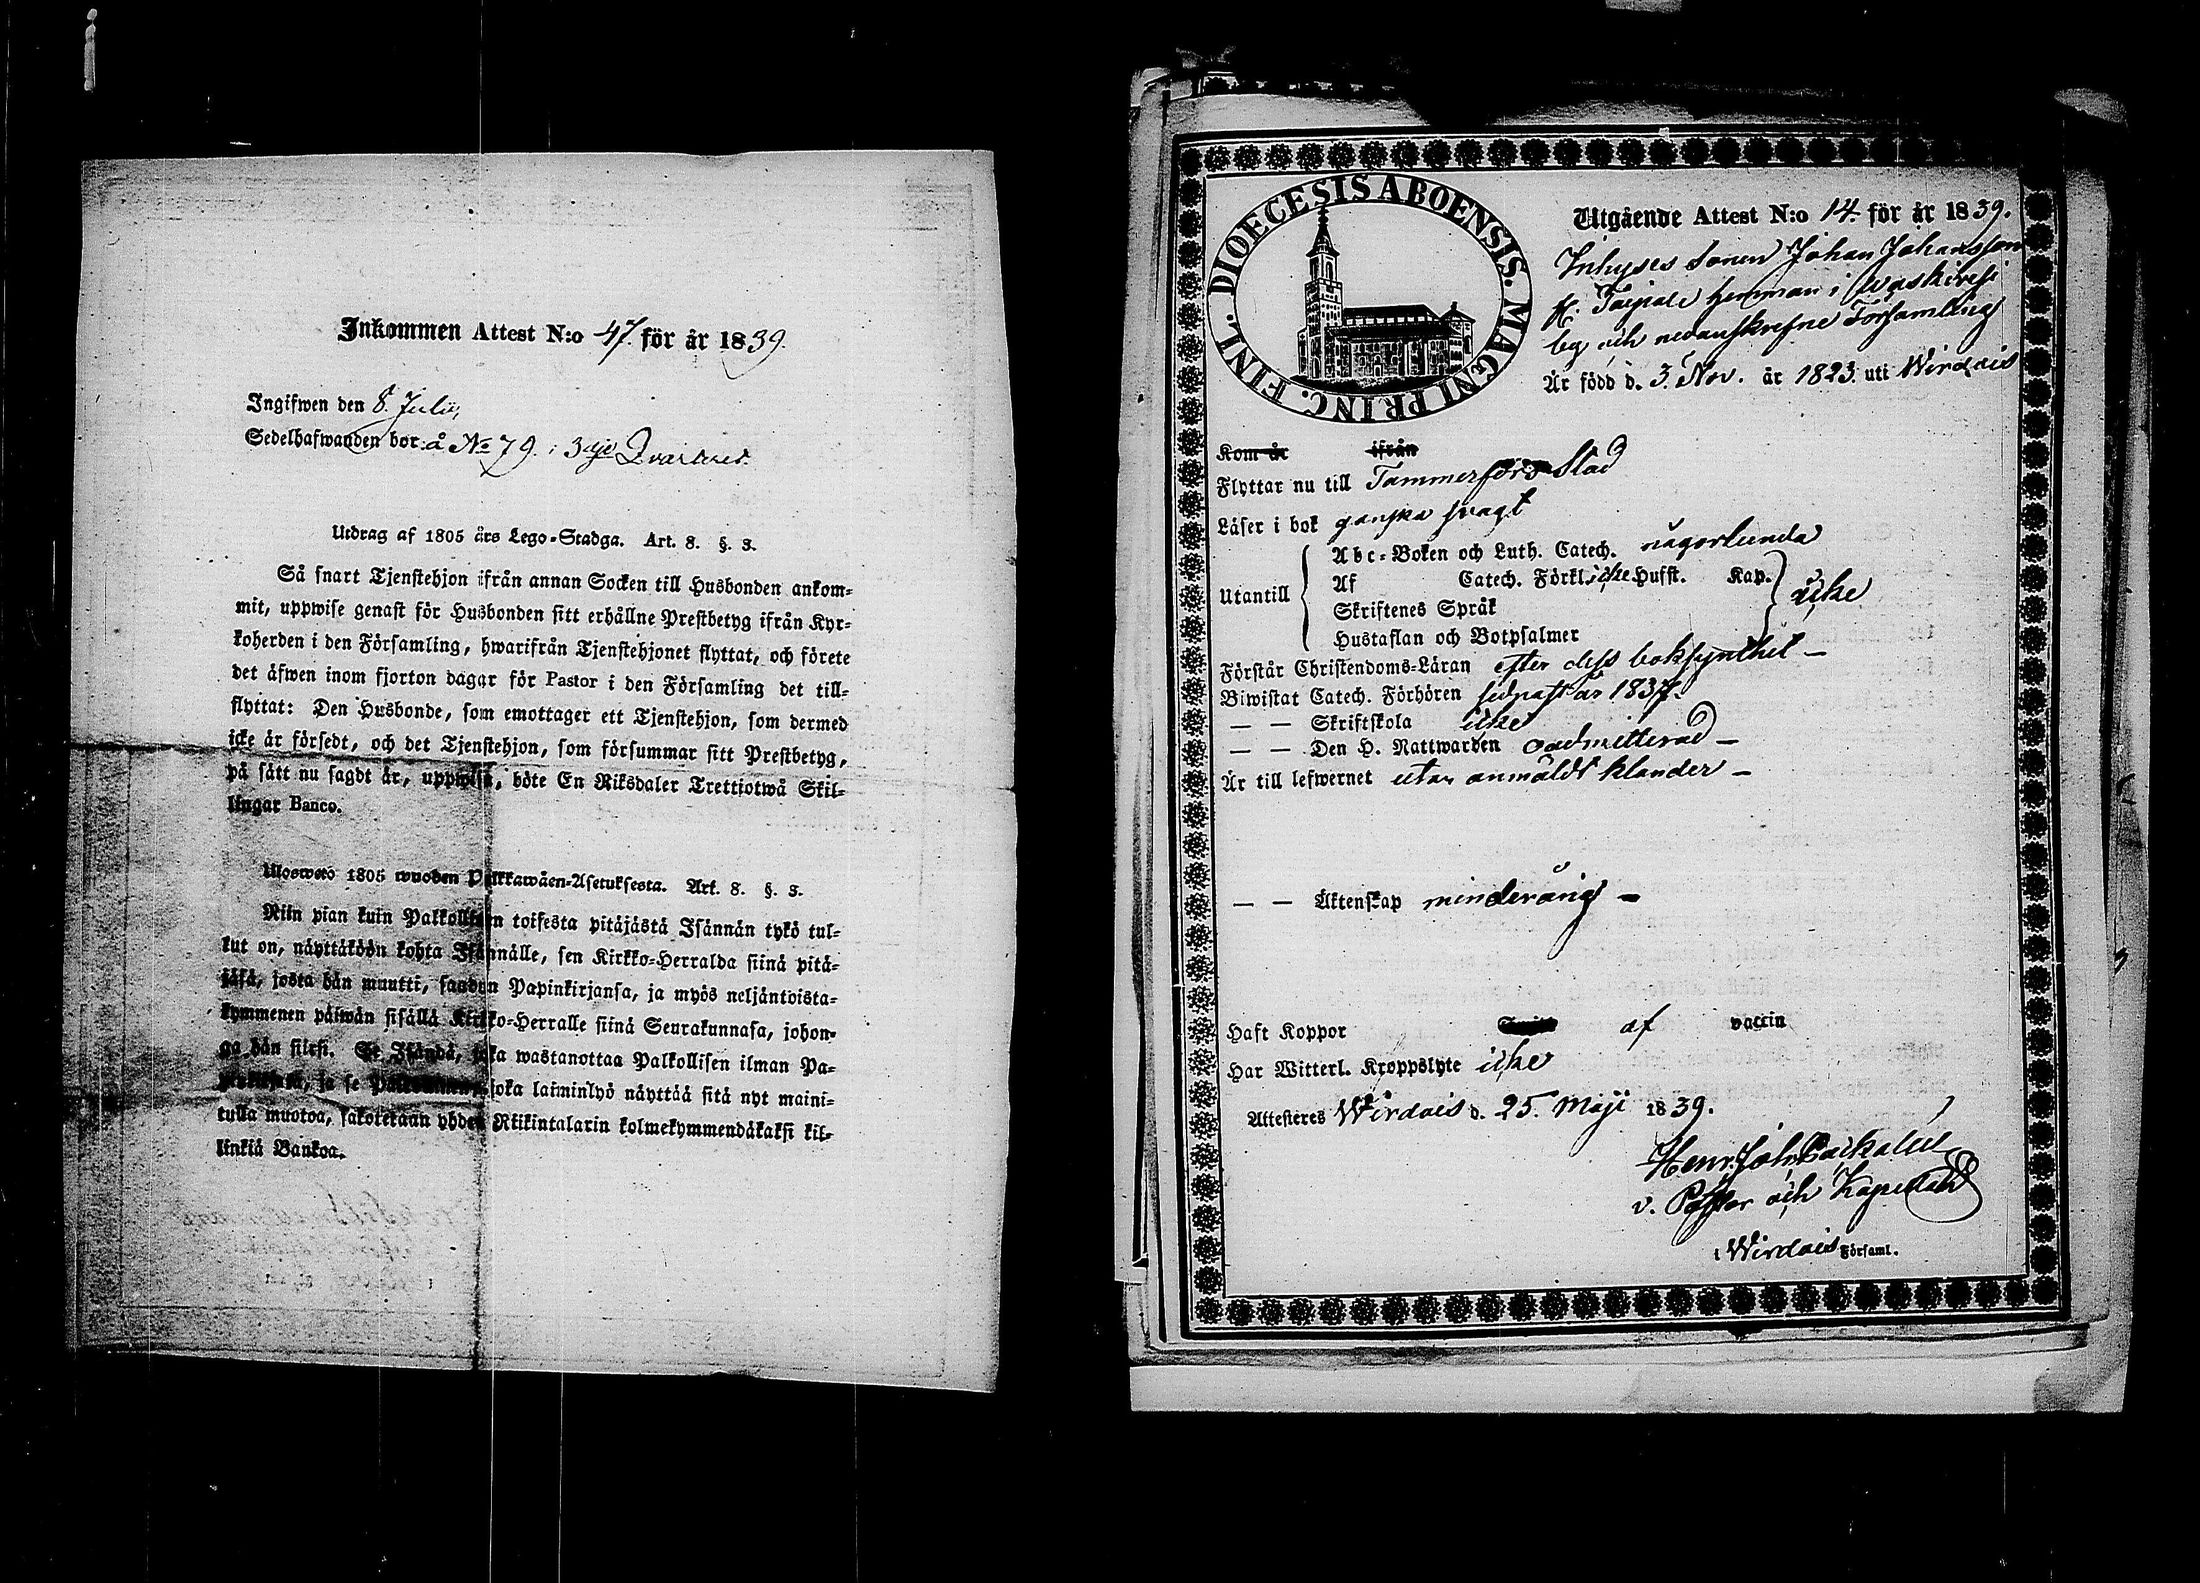 Inkommen Attest N:o 47. för år 1839.
Ingifwen den 8. Julii,
Sedelhafwanden bor: å No 79. i 3dje Qvarteret.
Utdrag af 1805 års Lego-Stadga. Art. 8. §. 3.
Så snart Tjenstehjon ifrån annan Socken till Husbonden ankom-
mit, uppwise genast för Husbonden sitt erhållne Prestbetyg ifrån Kyr-
koherden i den Församling, hwarifrån Tjenstehjonet flyttat, och förete
det äfwen inom fjorton dagar för Pastor i den Församling det till-
flyttat: Den Husbonde, som emottager ett Tjenstehjon, som dermed
icke är försedt, och det Tjenstehjon, som försummar sitt Prestbetyg,
på sätt nu sagdt är, uppwisa, böte En Riksdaler Trettiotwå Skil-
lingar Banco.
Ulosweto 1805 wuoden Palkkawäen-Asetuksesta. Art. 8. §. 3.
Niin pian kuin Palkollinen toisesta pitäjästä Isännän tykö tul-
lut on, näyttäköön kohta Isännälle, sen Kirkko-Herralda siinä pitä-
jäsä, josta hän muutti, saadun Papinkirjansa, ja myös neljäntoista-
kymmenen päiwän sisällä Kirkko-Herralle siinä Seurakunnasa, johon-
ga hän siirsi. Se Isändä, joka wastanottaa Palkollisen ilman Pa-
pinkirjata, ja se Palkollinen, joka laiminlyö näyttää sitä nyt maini-
tulla muotoa, sakotetaan yhden Riikintalarin kolmekymmendäkaksi kil-
linkiä Bankoa.
DIOECESIS ABOENSIS. MAGNI PRINC. FINL.
Utgående Attest N:o 14. för år 1839.
Inhyses sonen Johan Johansson
fr. Taipale hemman i Waskivesi
by och nedanskrefne Församling
Är född d. 3. Nov. år 1823. uti Wirdois
Kom år ifrån
Flyttar nu till Tammerfors Stad
Läser i bok ganska svagt
Utantill
Abc-Boken och Luth. Catech. någorlunda
Af Catech. Förkl. icke Hufst. Kap.
Skriftenes Språk
Hustaflan och Botpsalmer
icke
Förstår Christendoms-Läran efter dess boksynthet —
Biwistat Catech. Förhören sednast år 1837.
— — Skriftskola icke
— — Den H. Nattwarden oadmitterad —
Är till lefwernet utan anmäldt klander —
— — Äktenskap minderårig —
Haft Koppor af vaccin
Har Witterl. Kroppslyte icke
Attesteres Wirdois d. 25. Maji 1839.
Henr. Joh.
v. Pastor och Kapellan
i Wirdois Församl.